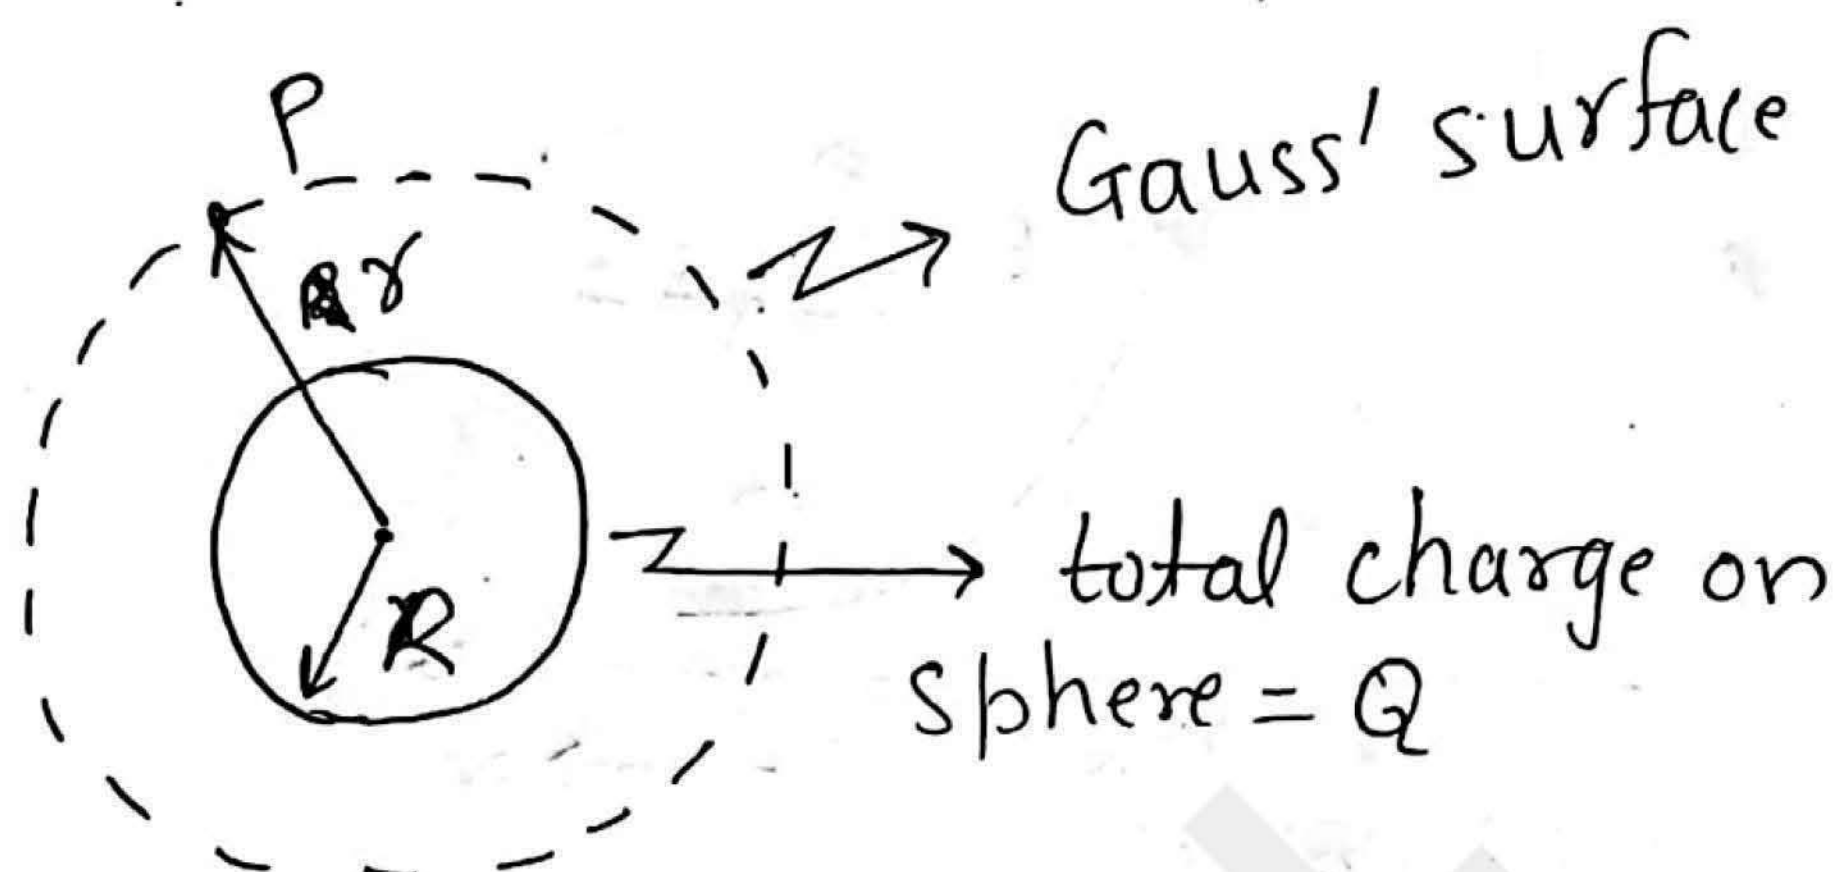 P
Gauss' surface
r
R
total charge on
sphere = Q